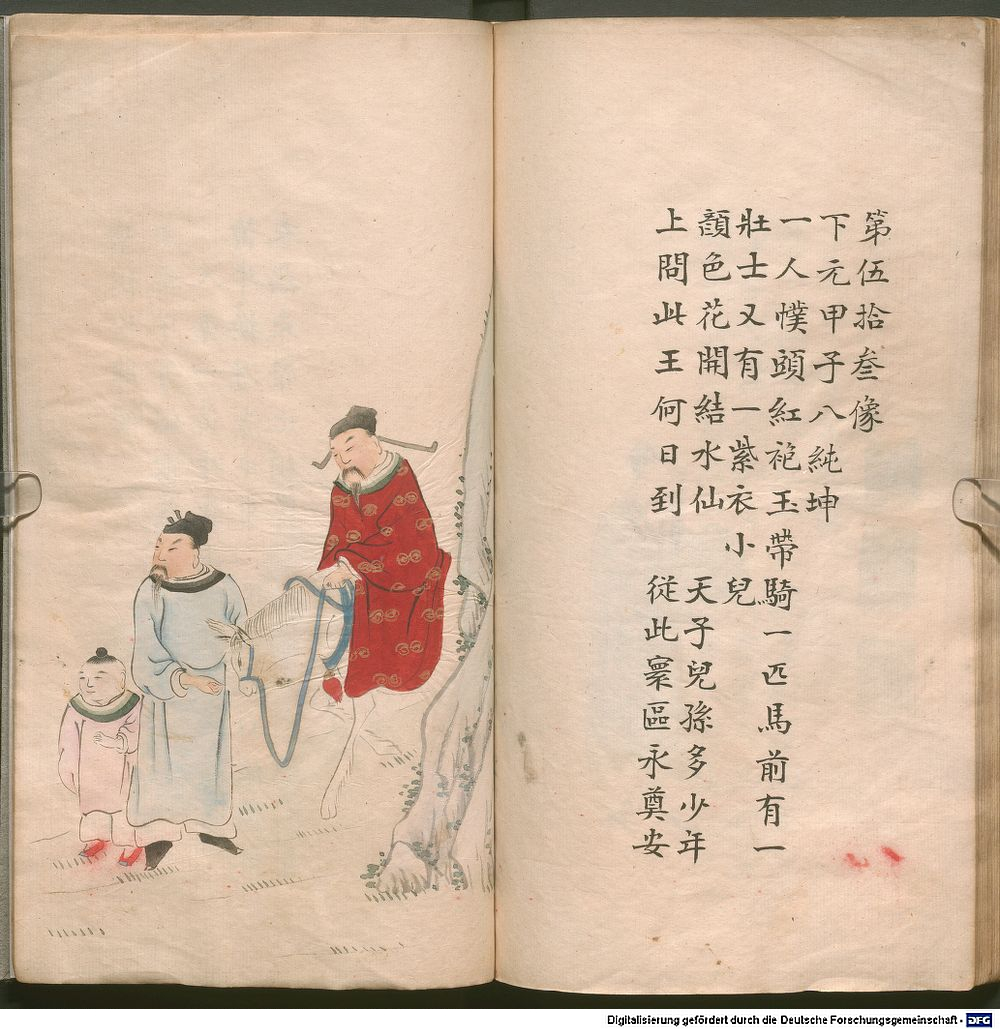 第伍拾叁像
下元甲子八純坤
一人幞頭紅袍玉帶騎一匹馬前有一
壯士又有一紫衣小兒
顏色花開結水仙　天子兒孫多少年
上問此王何日到　從此寰區永奠安
Digitalisierung gefördert durch die Deutsche Forschungsgemeinschaft - DFG